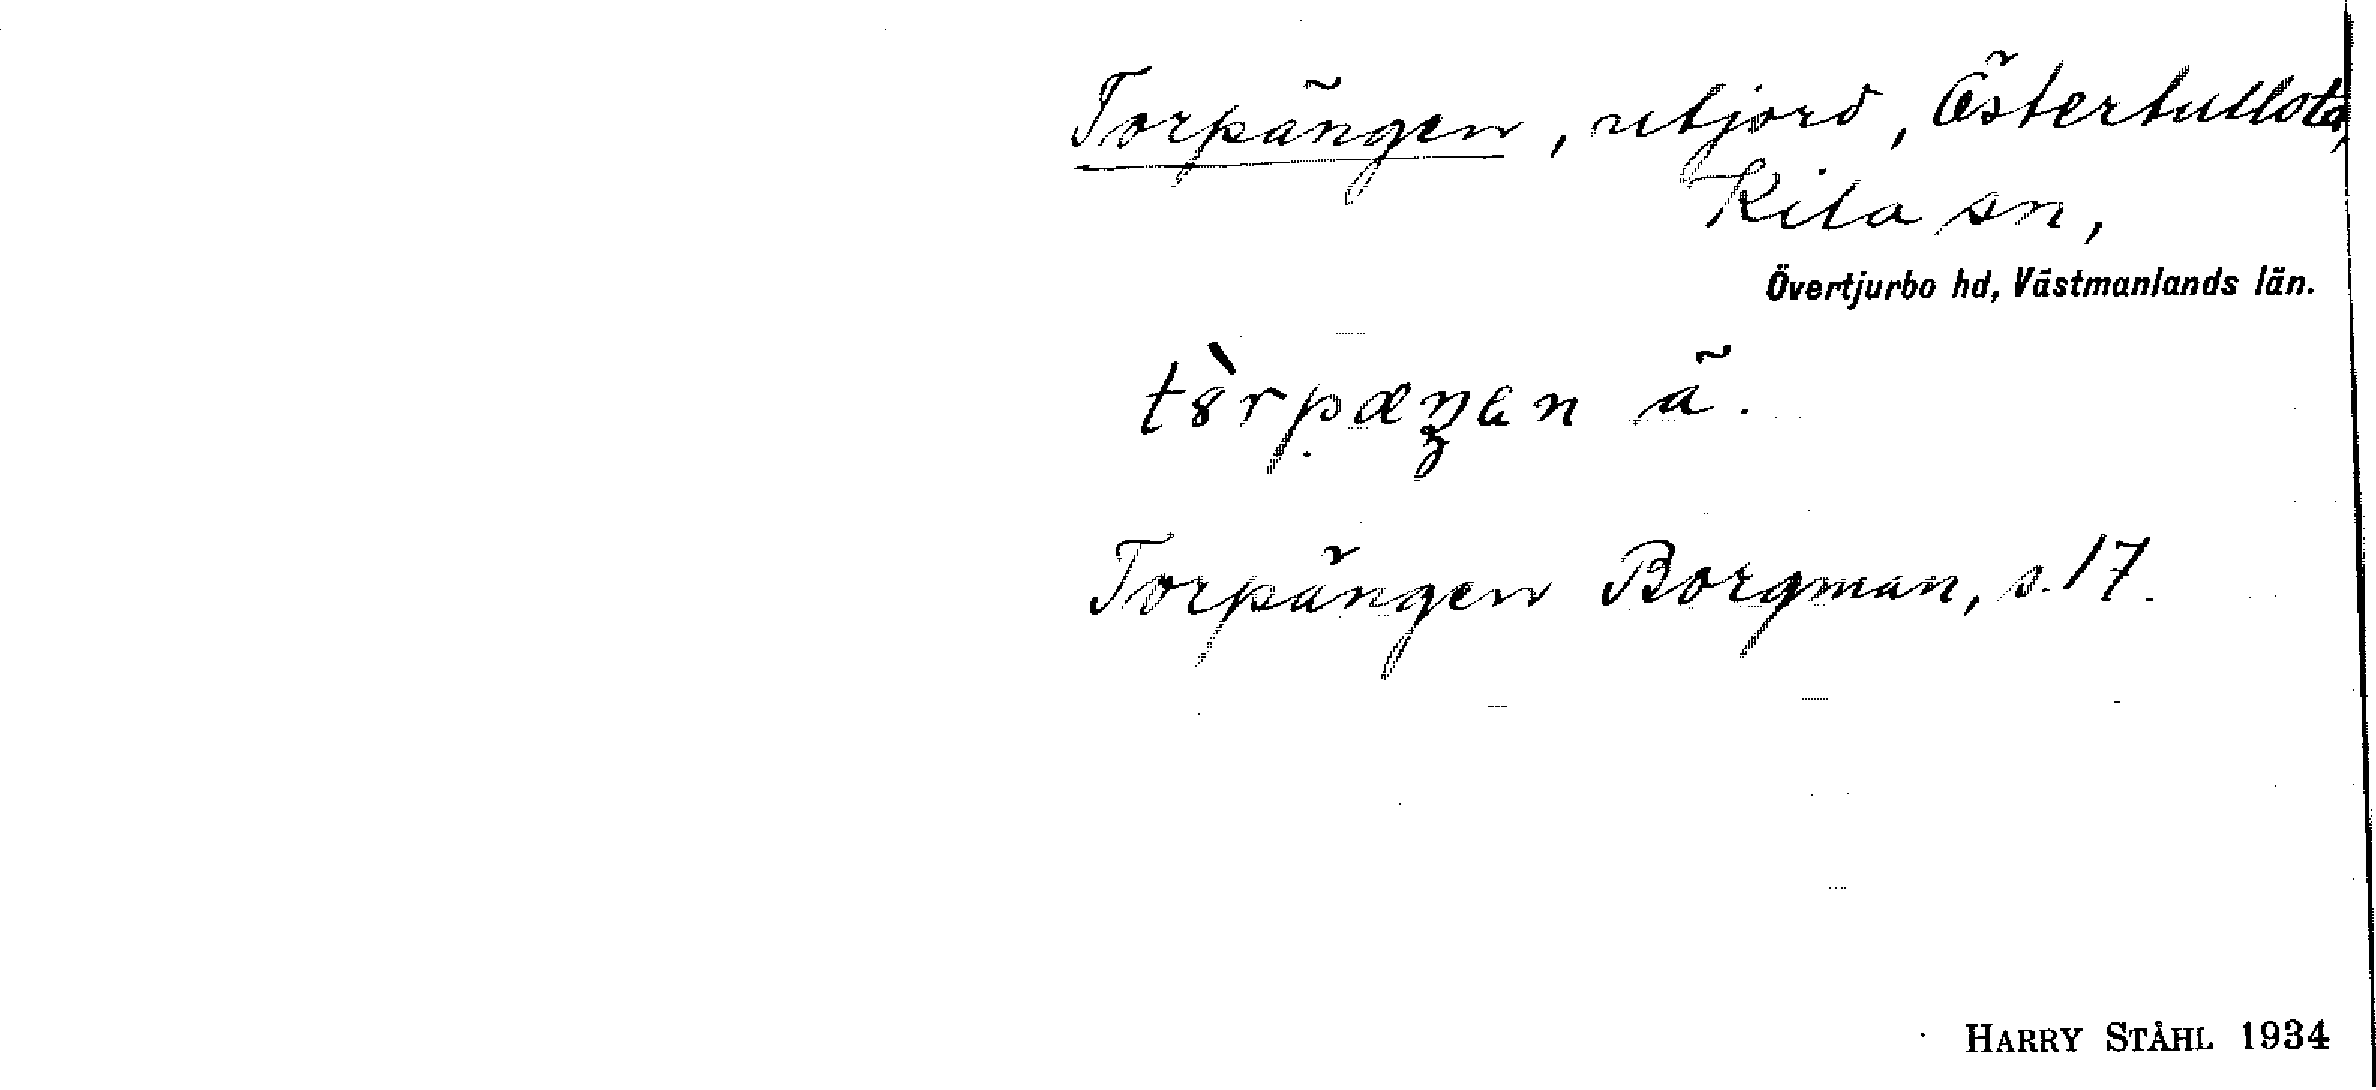 Torpängen, utjord, Östertullota,
Kila sn,
Övertjurbo hd, Västmanlands län.
ä.
Torpängen Borgman, s. 17.
HARRY STÅHL 1934